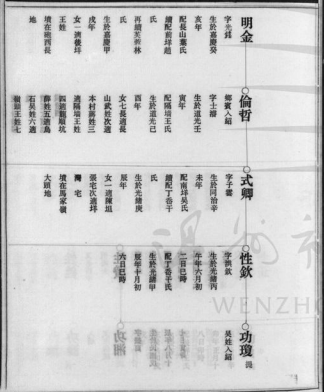 明金
字光緯
生於嘉慶癸
亥年
配長山葉氏
續配前垟趙
氏
再續芙蓉林
氏
生於嘉慶甲
戌年
女一適後垟
王姓
墳在砲西長
地
倫哲
鄉賓入紹
字士濬
生於道光壬
寅年
配隔墙王氏
續配
生於道光己
酉年
女七長適長
山武姓次適
本村蔣姓三
適隔墙王姓
四適龍順坑
薛姓五適鳥
石吳姓六適
嶺頭王姓七
式卿
字子雲
生於同治辛
未年
配南垟吳氏
續配丁岙干
氏
生於光緒庚
辰年
女一適陳垣
張宅次適垟
灣宅
墳在馬家嶺
大頭地
性欽
字洪欽
生於光緒丙
午年六月初
二日巳時
配丁岙干氏
生於光緒甲
辰年十月初
六日巳時
功瓊
吳姓入紹
WENZHO